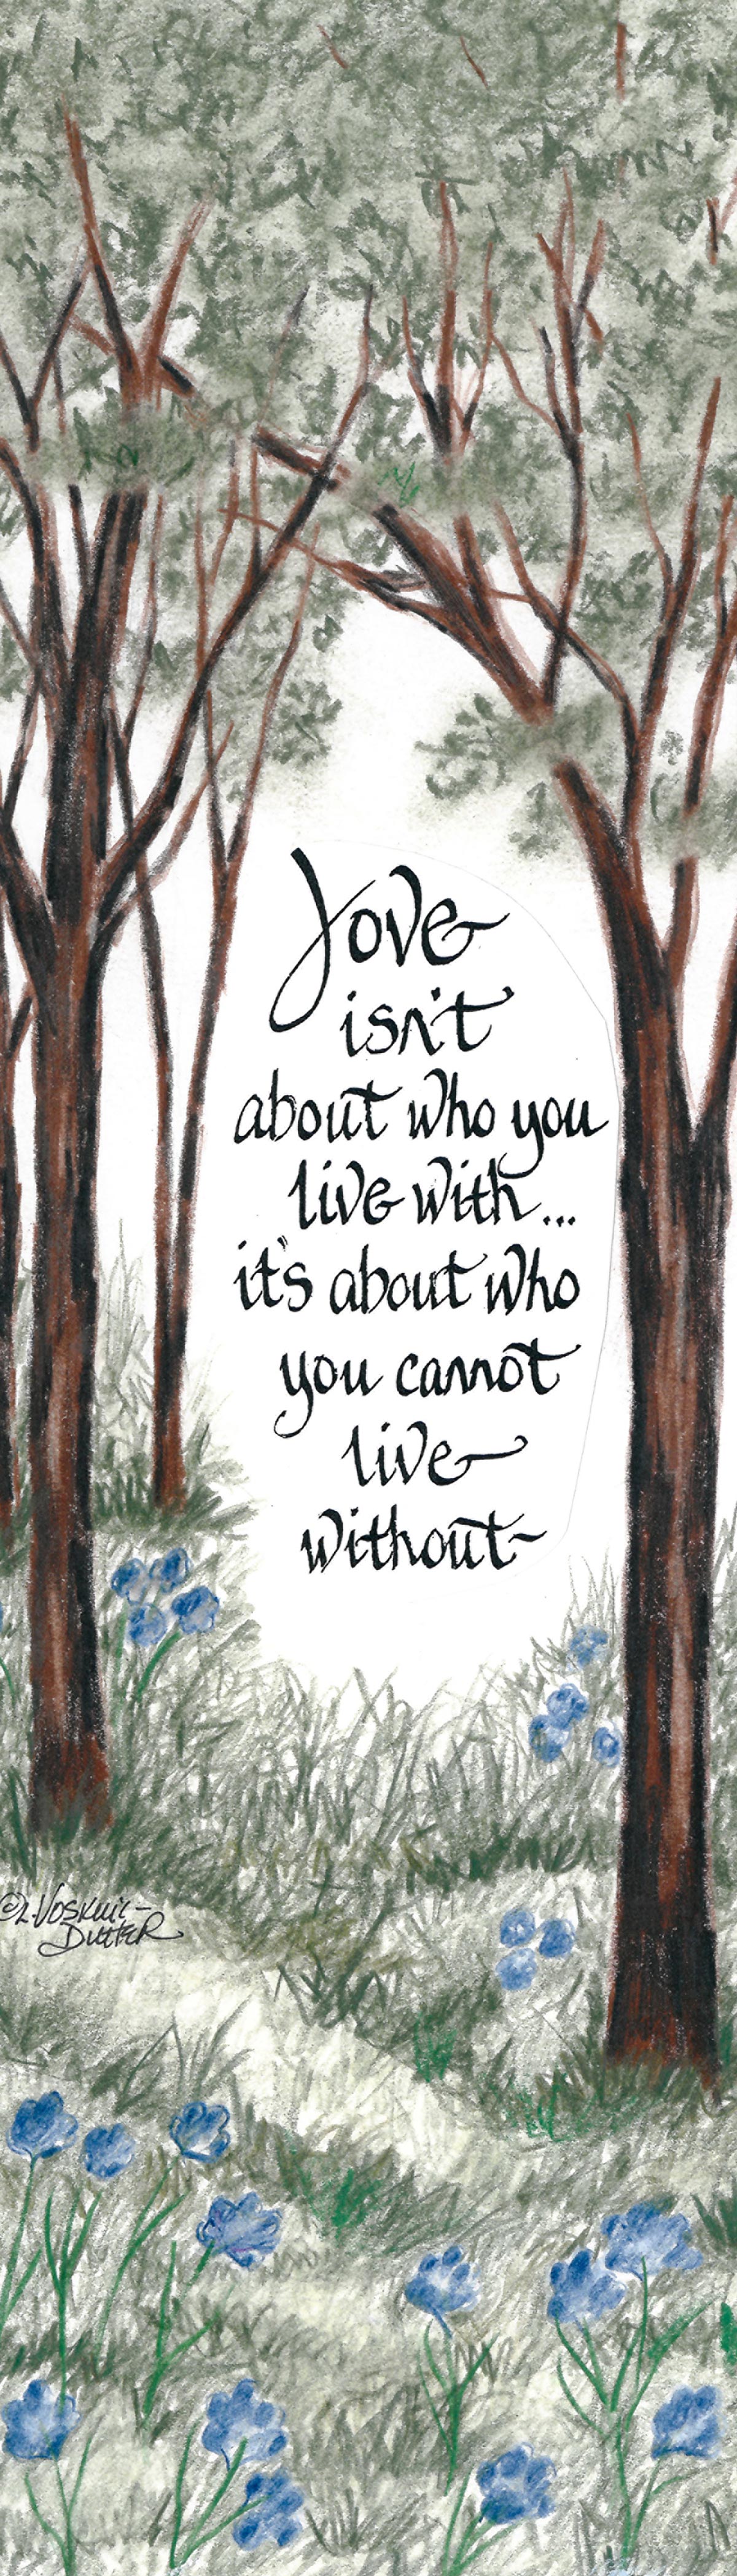 Love
isn't
about who you
live with...
it's about who
you cannot
live
without~
©L.Voskuil-
Dutter